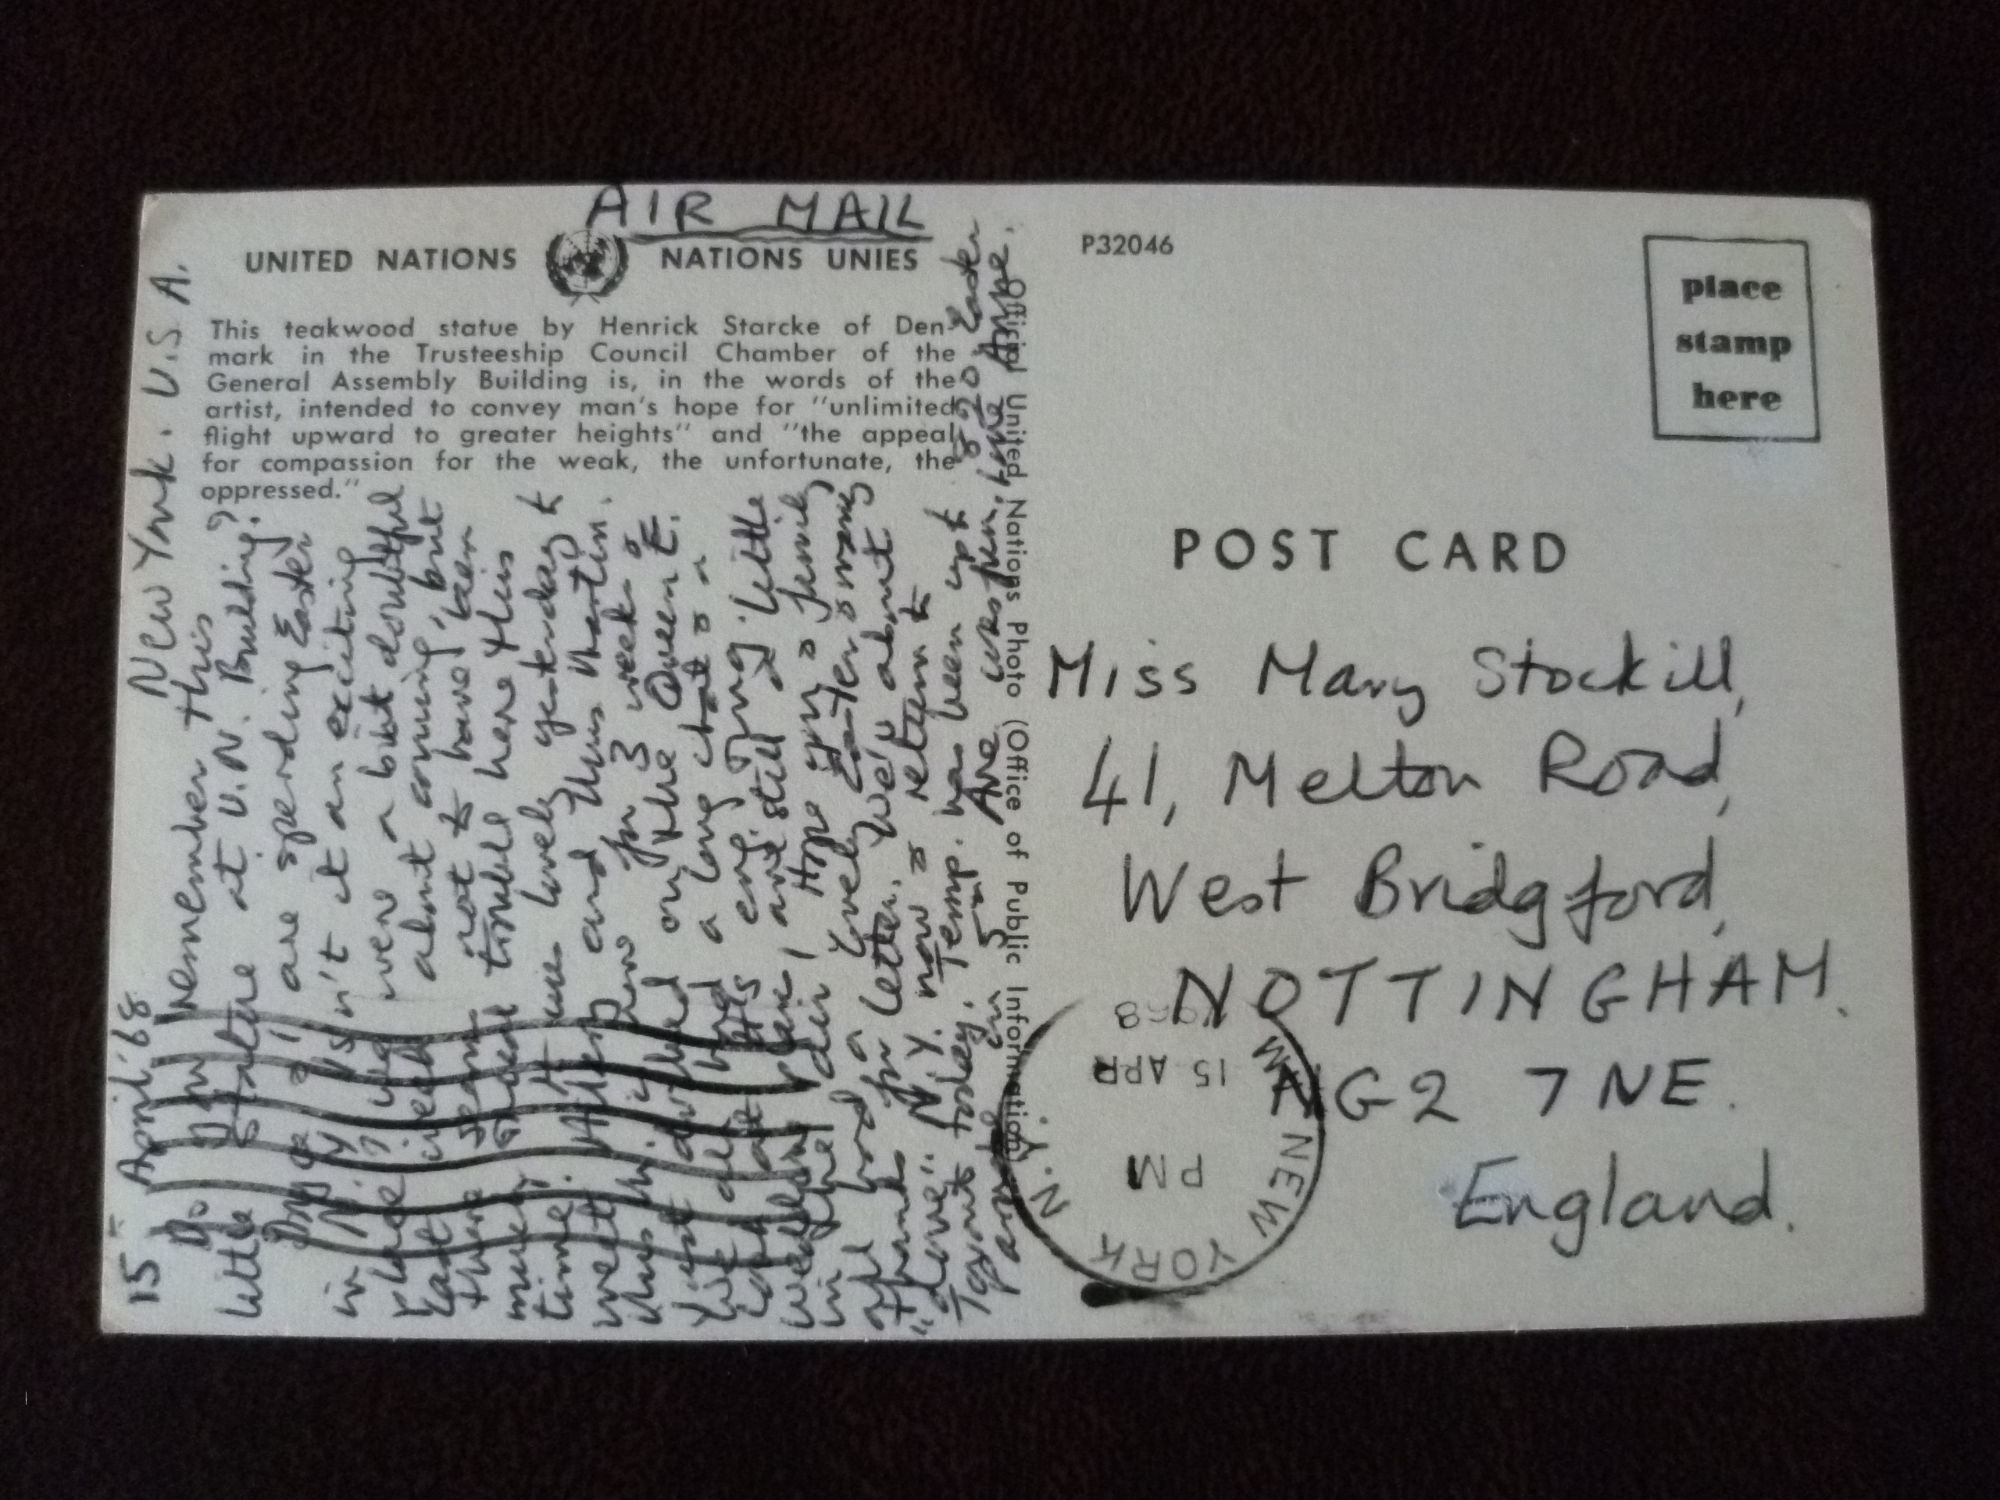 AIR MAIL
UNITED NATIONS NATIONS UNIES
This teakwood statue by Henrick Starcke of Den-
mark in the Trusteeship Council Chamber of the
General Assembly Building is, in the words of the
artist, intended to convey man's hope for "unlimited
flight upward to greater heights" and "the appeal
for compassion for the weak, the unfortunate, the
oppressed."
15 April '68 New York. U.S.A.
Do you remember this
little statue at U.N. Building?
are spending Easter
in N.Y. isn't it an exciting
place? We were a bit doubtful
last week about coming, but
there seems not to have been
much trouble here this
time. lovely yesterday to
meet and Miss Martin.
for 3 weeks &
just on the Queen E.
We all had a long chat
weather, Hope you & family
all had a lovely Easter & many
thanks for letter. We're about
"N.Y. now & return to
today. Temp. has been up to
80 Easter
parade on 5th Ave was fun. Love Anne.
Official United Nations Photo (Office of Public Information)
P32046
place
stamp
here
POST CARD
Miss Mary Stockill,
41, Melton Road,
West Bridgford,
NOTTINGHAM.
NG2 7NE.
England.
NEW YORK N.Y.
PM
15 APR
1968